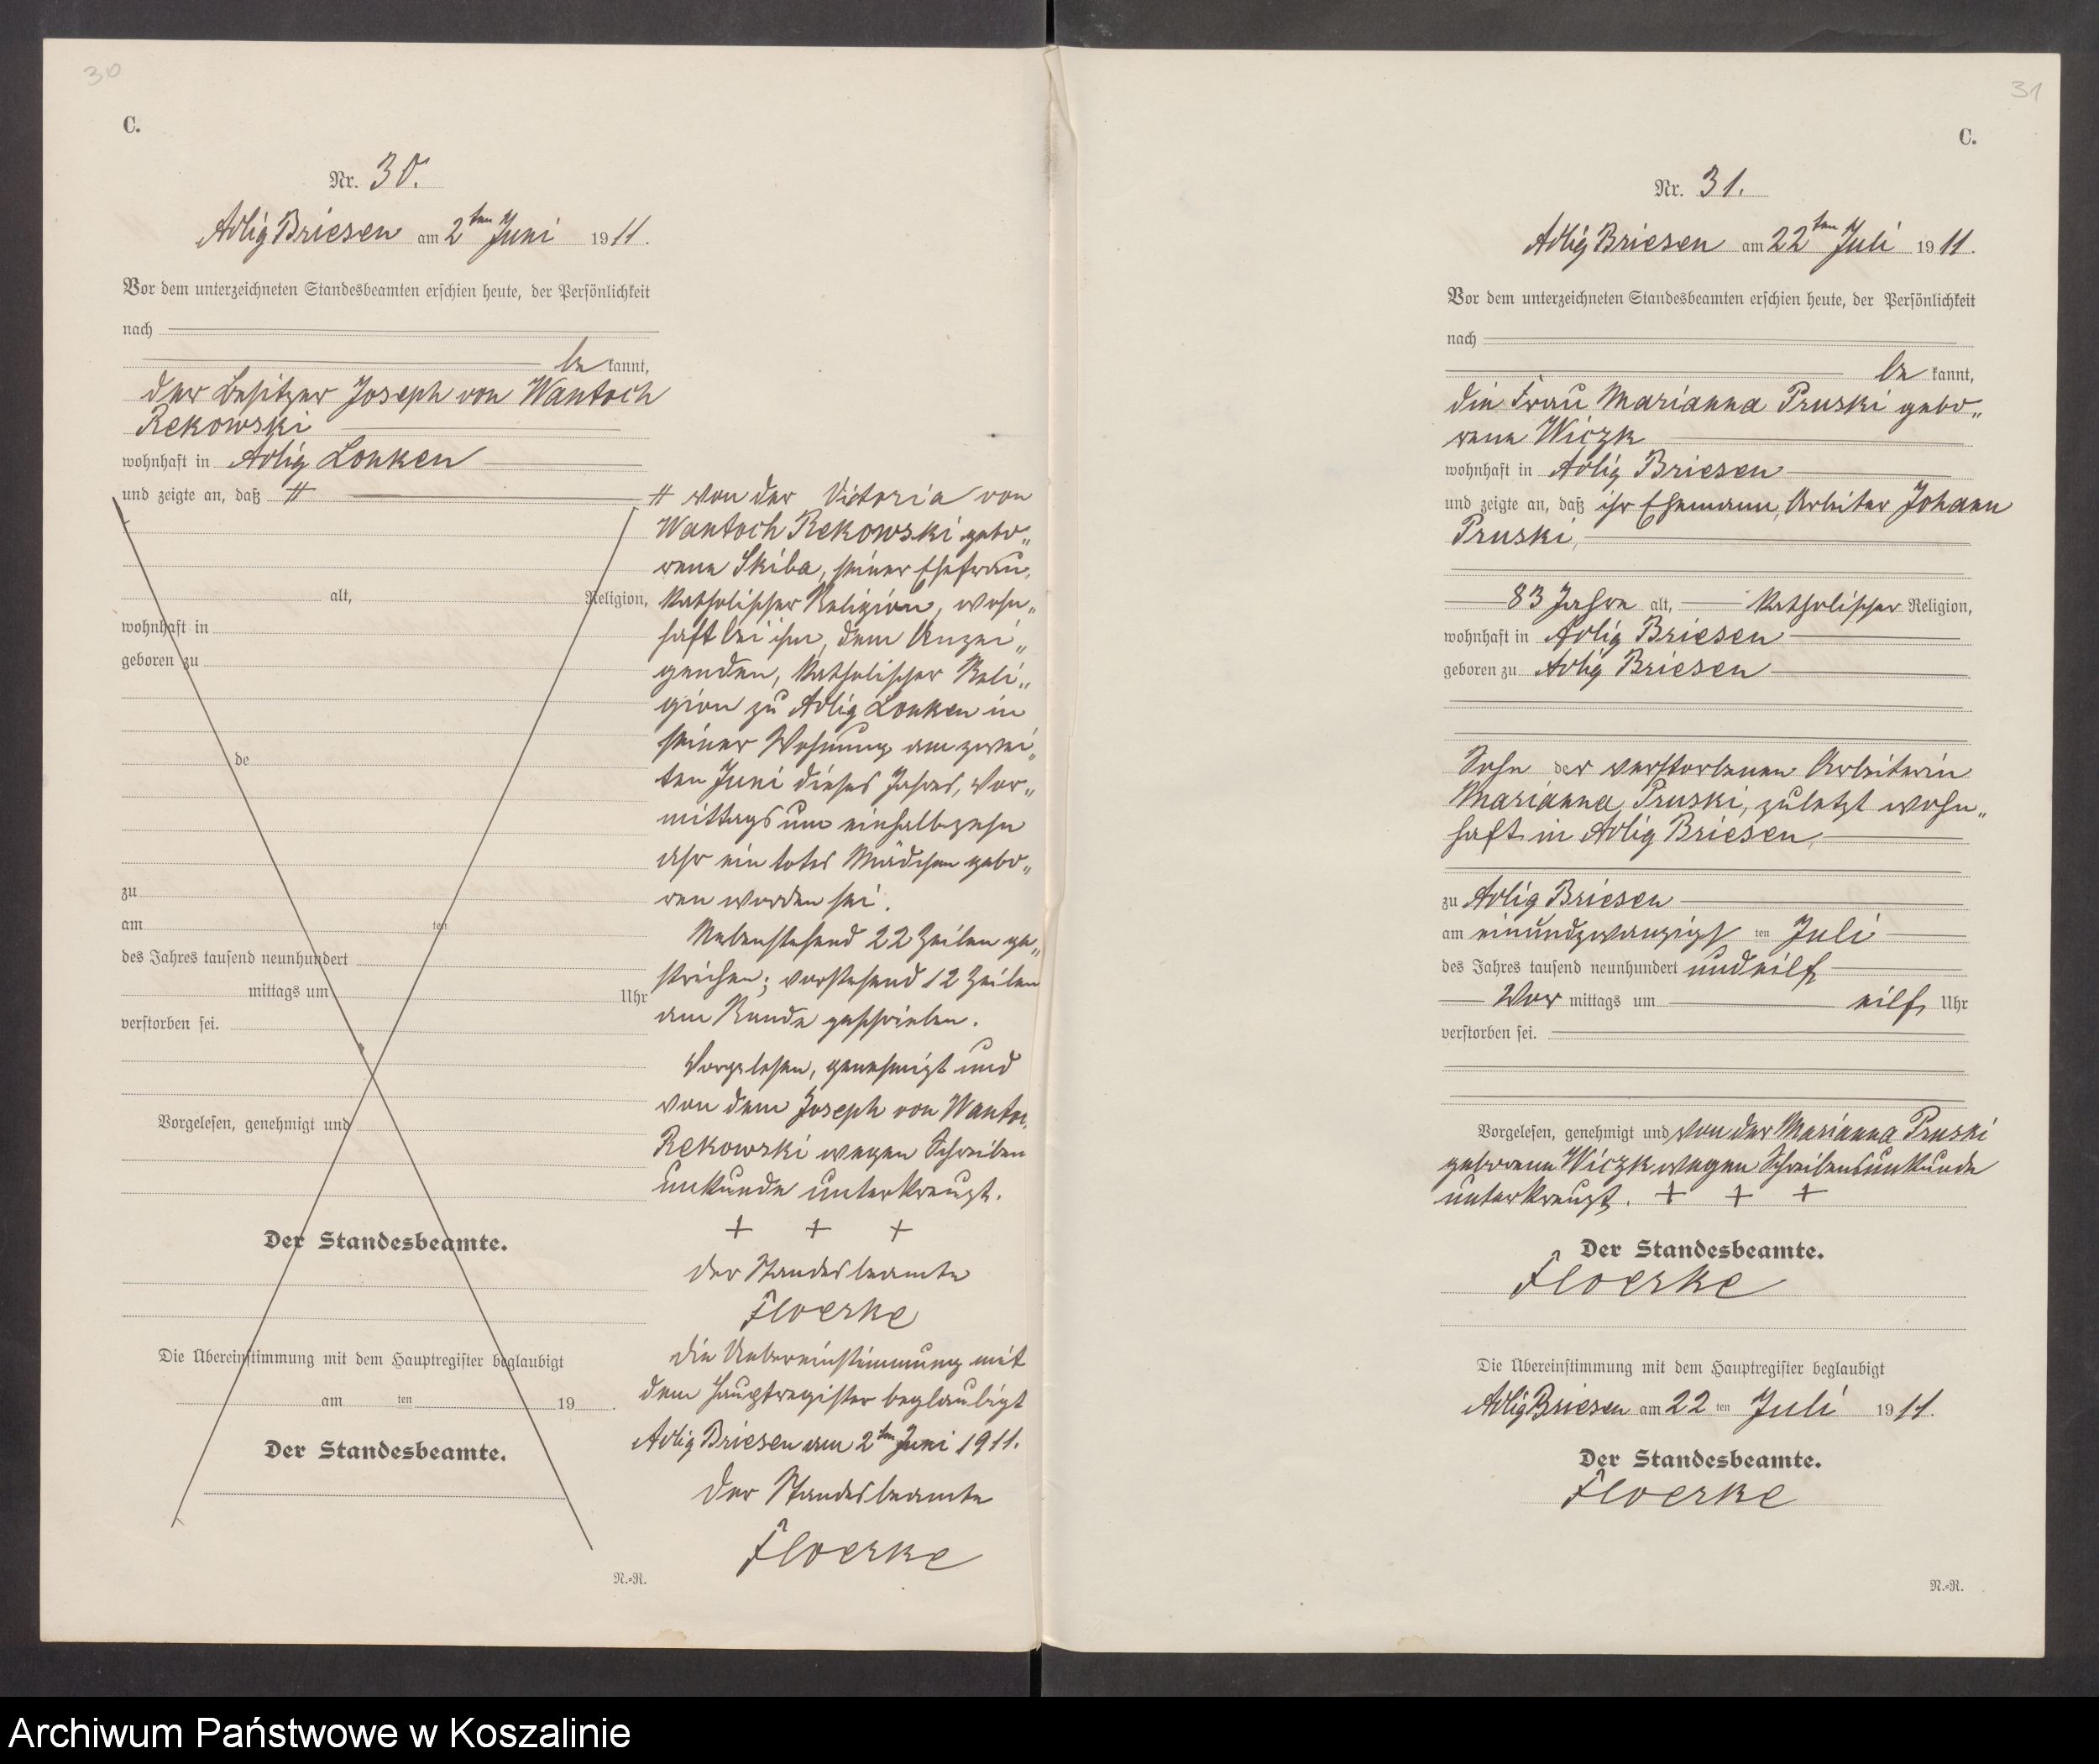 30
C.
Nr. 30.
Adlig Briesen am 2ten Juni 1911.
Vor dem unterzeichneten Standesbeamten erschien heute, der Persönlichkeit
nach
be kannt,
der Besitzer Joseph von Wantoch
Rekowski
wohnhaft in Adlig Lonken
und zeigte an, daß #
alt, Religion,
wohnhaft in
geboren zu
de
zu
am ten
des Jahres tausend neunhundert
mittags um Uhr
verstorben sei.
Vorgelesen, genehmigt und
Der Standesbeamte.
Die Übereinstimmung mit dem Hauptregister beglaubigt
am ten 19 .
Der Standesbeamte.
N.=R.
# von der Victoria von
Wantoch Rekowski gebo„
rene Skiba, seiner Ehefrau,
katholischer Religion, wohn„
haft bei ihm, dem Anzei„
genden, katholischer Reli„
gion zu Adlig Lonken in
seiner Wohnung am zwei„
ten Juni dieses Jahres, Vor„
mittags um einhalbzehn
Uhr ein totes Mädchen gebo„
ren worden sei.
Nebenstehend 22 Zeilen ge„
strichen; vorstehend 12 Zeilen
am Rande geschrieben.
Vorgelesen, genehmigt und
von dem Joseph von Wantoch
Rekowski wegen Schreiben
unkunde unterkreuzt.
+ + +
Der Standesbeamte
Floerke
Die Uebereinstimmung mit
dem Hauptregister beglaubigt
Adlig Briesen am 2ten Juni 1911.
Der Standesbeamte
Floerke
31
C.
Nr. 31.
Adlig Briesen am 22ten Juli 1911.
Vor dem unterzeichneten Standesbeamten erschien heute, der Persönlichkeit
nach
be kannt,
die Frau Marianna Pruski gebo„
rene Wiczk
wohnhaft in Adlig Briesen
und zeigte an, daß ihr Ehemann, Arbeiter Johann
Pruski,
83 Jahre alt, katholischer Religion,
wohnhaft in Adlig Briesen
geboren zu Adlig Briesen
Sohn der verstorbenen Arbeiterin
Marianna Pruski, zuletzt wohn„
haft in Adlig Briesen,
zu Adlig Briesen
am einundzwanzigs ten Juli
des Jahres tausend neunhundert und eilf
Vor mittags um eilf Uhr
verstorben sei.
Vorgelesen, genehmigt und von der Marianna Pruski
geborene Wiczk wegen Schreibensunkunde
unterkreuzt. + + +
Der Standesbeamte.
Floerke
Die Übereinstimmung mit dem Hauptregister beglaubigt
Adlig Briesen am 22 ten Juli 1911.
Der Standesbeamte.
Floerke
N.=R.
Archiwum Państwowe w Koszalinie